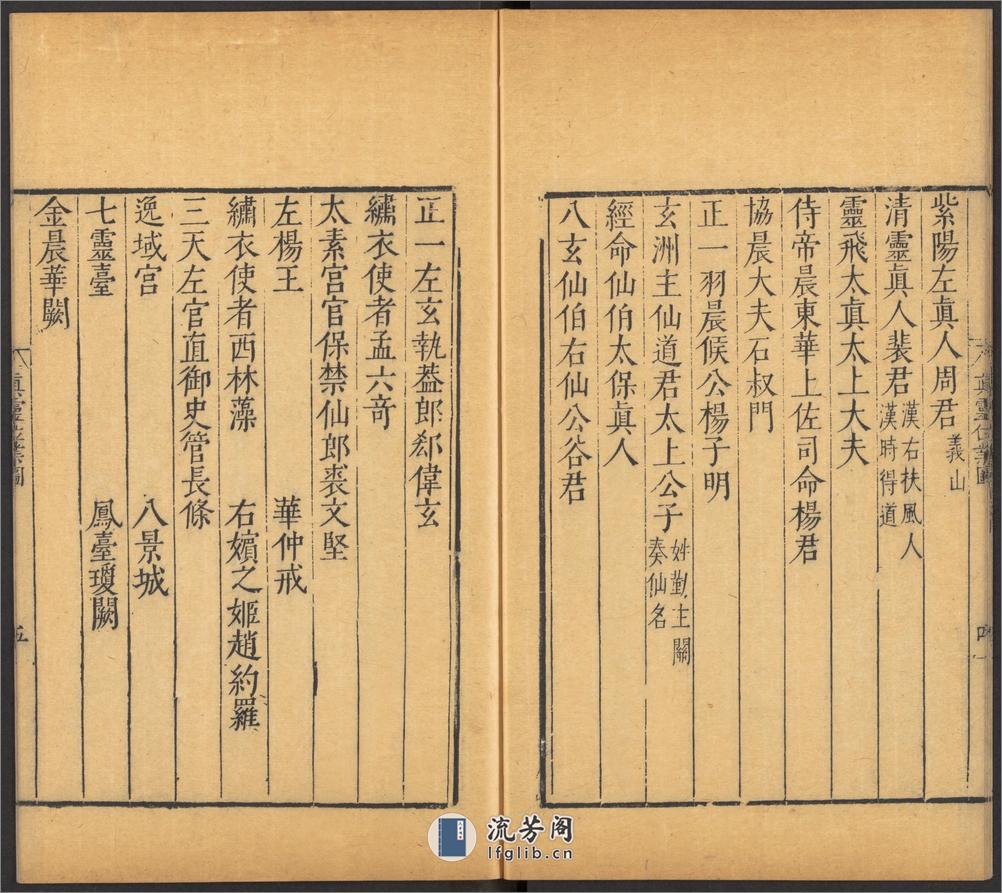 紫陽左眞人周君義山
清靈眞人裴君漢右扶風人漢時得道
靈飛太眞太上大夫
侍帝晨東華上佐司命楊君
協晨大夫石叔門
正一羽晨候公楊子明
玄洲主仙道君太上公子姓勤主關奏仙名
經命仙伯太保眞人
八玄仙伯右仙公谷君
正一左玄執葢郎郄偉玄
繡衣使者孟六竒
太素宮官保禁仙郎裘文堅
左楊王 華仲戒
繡衣使者西林藻 右嬪之姬趙約羅
三天左官直御史管長條
逸域宮 八景城
七靈臺 鳳臺瓊闕
金晨華闕
五
流芳阁
lfglib.cn